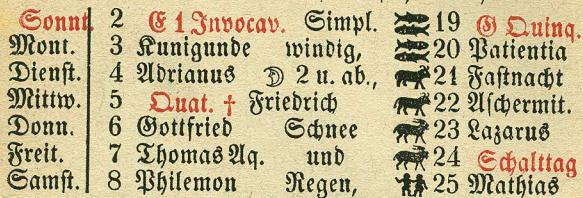 Sonnt. 2 E 1 Invocav. Simpl. 19 G Quinq.
Mont. 3 Kunigunde windig, 20 Patientia
Dienst. 4 Adrianus ☽ 2 u. ab., 21 Fastnacht
Mittw. 5 Quat. † Friedrich 22 Aschermit.
Donn. 6 Gottfried Schnee 23 Lazarus
Freit. 7 Thomas Aq. und 24 Schalttag
Samst. 8 Philemon Regen, 25 Mathias